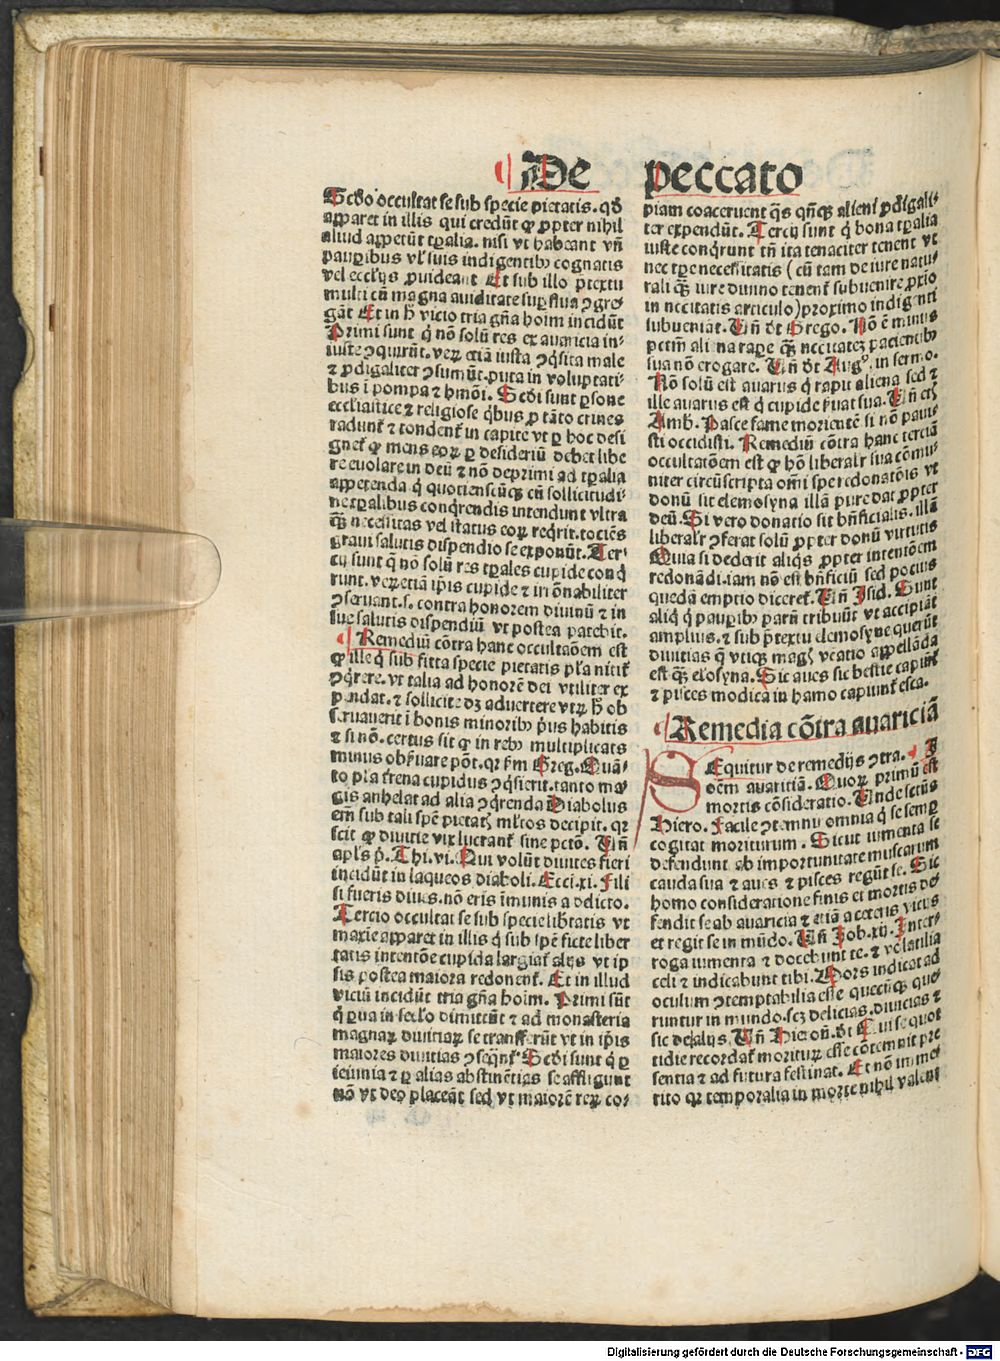 De peccato
Scd̄o occultat se sub specie pietatis. qd̄
apparet in illis qui credūt ꝙ ꝓpter nihil
aliud appetūt tꝑalia. nisi vt habeant vn̄
pauꝑibus vl̓ suis indigentibꝰ cognatis
vel eccl̓ijs ꝓuideant Et sub illo p̄textu
multi cū magna auiditate suꝑflua ꝯgre
gāt Et in h̄ vicio tria gn̄a hoīm incidūt
Primi sunt q̇ nō solū res ex auaricia in⸗
iuste ꝯquirūt. veꝝ etiā iusta ꝯq̇sita male
⁊ ꝓdigaliter ꝯsumūt. puta in voluptati⸗
bus ī pompa ⁊ hmōi. Scd̄i sunt ꝑsone
eccl̓iastice ⁊ religiose q̇bus ꝓ tāto crines
radunt̄ ⁊ tondent̄ in capite vt ꝑ hoc desi
gnet̄ ꝙ mens eoꝝ ꝑ desideriū debet libe
re euolare in deū ⁊ nō deprimi ad tꝑalia
appetenda q̇ quotienscūqꝫ cū sollicitudi⸗
ne tꝑalibus conq̇rendis intendunt vltra
qꝫ necessitas vel status eoꝝ req̇rit. tociēs
graui salutis dispendio se exponūt. Ter⸗
cij sunt q̇ nō solū res tꝑales cupide conq̇
runt. veꝝ etiā ip̄is cupide ⁊ irrōnabiliter
ꝯseruant. s. contra honorem diuinū ⁊ in
sue salutis dispendiū vt postea patebit.
¶ Remediū cōtra hanc occultaōem est
ꝙ ille q̇ sub ficta specie pietatis pl̓a nitit̄
ꝯq̇rere. vt talia ad honorē dei vtiliter ex
pendat. ⁊ sollicite dꝫ aduertere vtꝝ h̄ ob
seruauerit ī bonis minoribꝰ pͥus habitis
⁊ si nō. certus sit ꝙ in rebꝰ multiplicatis
minus obẜuare pōt. qꝛ ẜm Greg. Quā⸗
to pla terrena cupidus ꝯq̇sierit. tanto ma
gis anhelat ad alia ꝯq̇renda Diabolus
em̄ sub tali spē pietatꝭ ml̓tos decipit. qꝛ
scit ꝙ diuitie vix lucrant̄ sine pctō. Vn̄
apl̓s p̓. Thi. vi. Qui volūt diuites fieri
incidūt in laqueos diaboli. Ecci. xi. Fili
si fueris diues. nō eris īmunis a delicto.
Tercio occultat se sub specie libertatis vt
maxīe apparet in illis q̇ sub spē ficte liber
tatis intentōe cupida largiat̄ alijs vt ip
sis postea maiora redonent̄. Et in illud
viciū incidūt tria gn̄a hoīm. Primi sūt
q̇ ꝑua in sccl̓o dimittūt ⁊ ad monasteria
magnaꝝ diuitiaꝝ se transferūt vt in ip̄is
maiores diuitias ꝯseq̄nt̄ Scd̄i sunt q̇ ꝑ
ieiunia ⁊ ꝑ alias abstinētias se affligunt
nō vt deo placeāt sed vt maiorē reꝝ co⸗
piam coaceruent q̄s qn̄qꝫ alieni ꝓdigali⸗
ter expendūt. Tercij sunt q̇ bona tꝑalia
iuste conq̇runt tn̄ ita tenaciter tenent vt
nec tꝑe necessitatis (cū tam de iure natu⸗
rali qꝫ iure diuino tenent̄ subuenire ꝓxīo
in nccitatis articulo) proximo indigenti
subueniāt. Vn̄ dt Grego. Nō ē minus
pctm̄ aliena raꝑe qꝫ nccitatez pacientibꝰ
sua nō erogare. Vn̄ dt Augꝰ. in sermo.
Nō solū est auarus q̇ rapit aliena sed ⁊
ille auarus est q̇ cupide ẜuat sua. Vn̄ etꝭ
Amb. Pasce fame morientē si nō paui⸗
sti occidisti. Remediū cōtra hanc terciā
occultatōem est ꝙ hō liberalr̄ sua cōmu⸗
niter circūscripta om̄i spe redonatōis vt
donū sit elemosyna illā pure dat ꝓpter
deū. Si vero donatio sit bn̄ficialis. illā
liberalr̄ ꝯferat solū ꝓpter donū virtutis
Quia si dederit aliq̇s ꝓpter intentōem
redonādi. iam nō est bn̄ficiū sed pocius
quedā emptio diceret̄. Vn̄ Isid. Sunt
aliq̇ q̇ pauꝑibꝰ parū tribuūt vt accipiāt
amplius. ⁊ sub p̄textu elemosyne querūt
diuitias q̄ vtiqꝫ magꝭ venatio appellāda
est qꝫ el̓osyna. Sic aues sic bestie capiūt̄
⁊ pisces modica in hamo capiunt̄ esca.
¶ Remedia cōtra auariciā
SEquitur de remedijs ꝯtra. ¶
oēm auaritiā. Quoꝝ primū est
mortis cōsideratio. Vnde sctūs
Hiero. Facile ꝯtemnit omnia q̇ se semꝑ
cogitat moriturum. Sicut iumenta se
defendunt ab importunitate muscarum
cauda sua ⁊ aues ⁊ pisces regūt se. Sic
homo consideratione finis et mortis de⸗
fendit se ab auaricia ⁊ etiā a ceteris vicijs
et regit se in mūdo. Vn̄ Job. xij. Inter⸗
roga iumenta ⁊ docebunt te. ⁊ volatilia
celi ⁊ indicabunt tibi. Mors indicat ad
oculum ꝯtemptabilia esse quecūqꝫ que⸗
runtur in mundo. scꝫ delicias. diuicias ⁊
sic de alijs. Vn̄ Hieroñ. dt Qui se quot
tidie recordat̄ morituꝝ esse cōtemnit pre
sentia ⁊ ad futura festinat. Et nō imme⸗
rito qꝛ temporalia in morte nihil valent
Digitalisierung gefördert durch die Deutsche Forschungsgemeinschaft - DFG